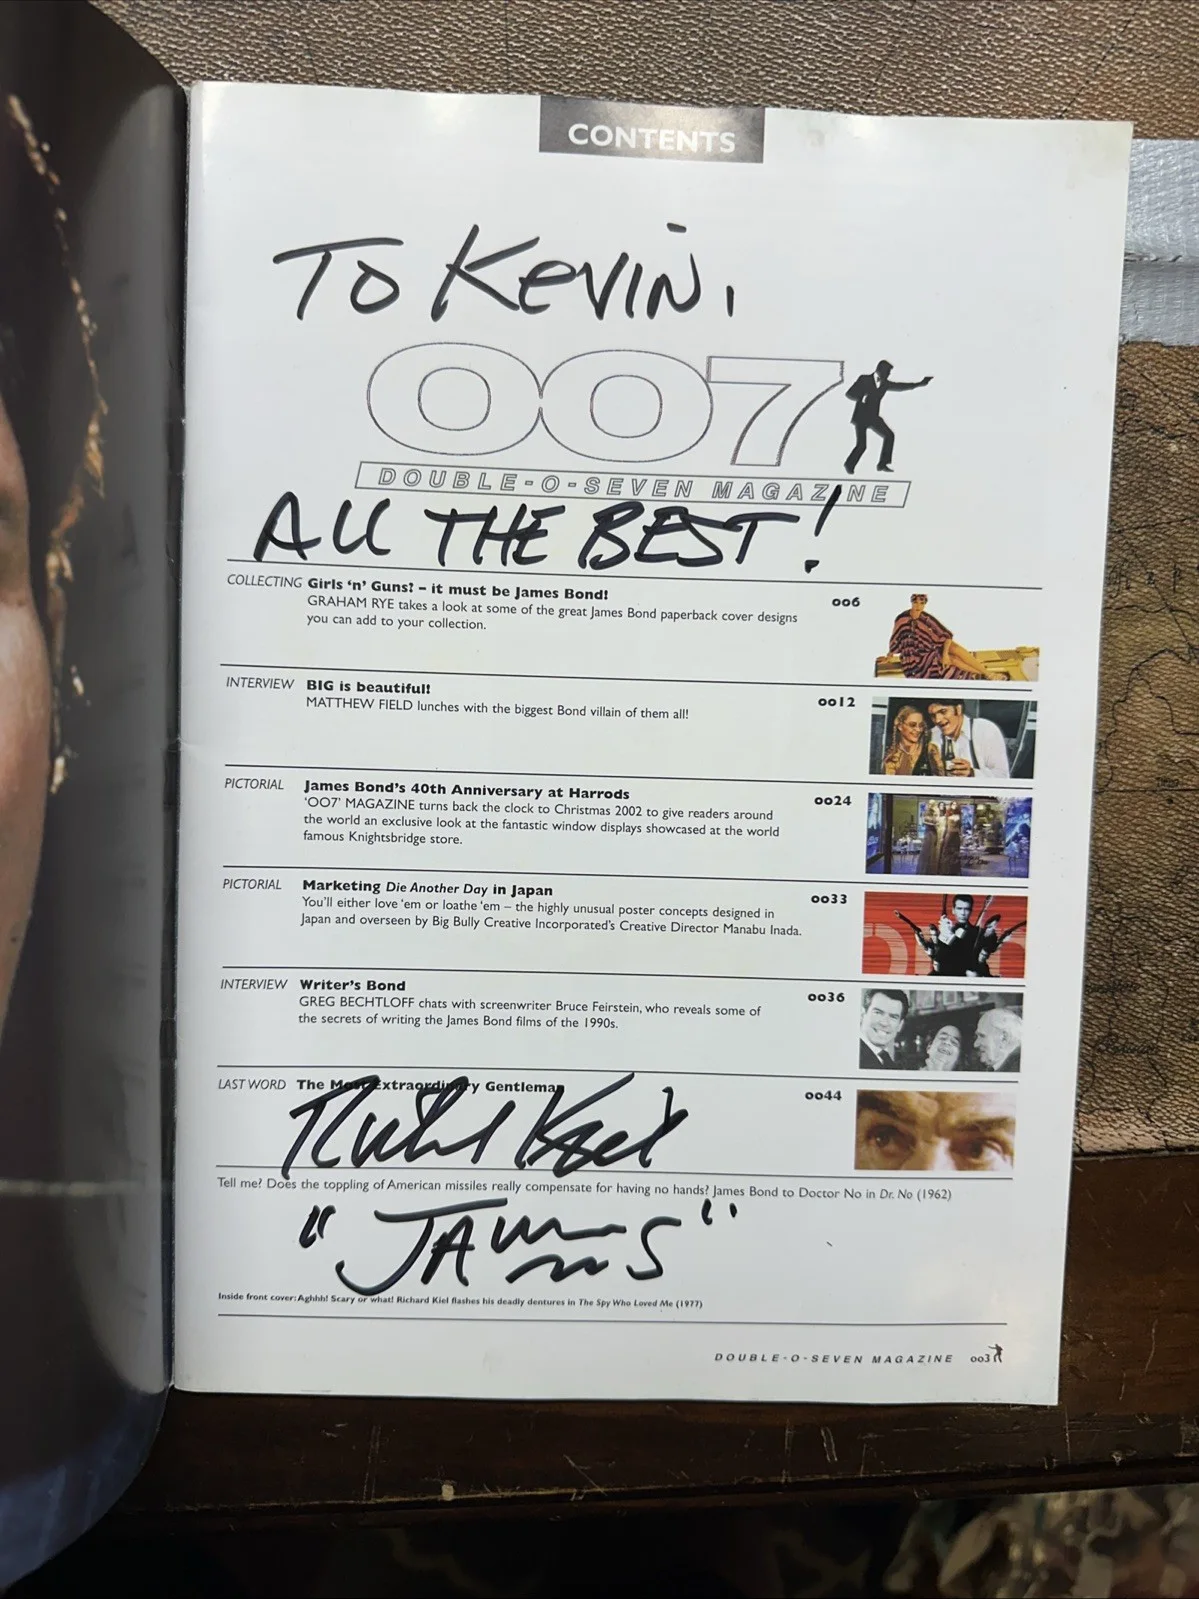 CONTENTS
TO KEVIN,
007
DOUBLE-O-SEVEN MAGAZINE
ALL THE BEST!
COLLECTING Girls 'n' Guns? – it must be James Bond! 006
GRAHAM RYE takes a look at some of the great James Bond paperback cover designs
you can add to your collection.
INTERVIEW BIG is beautiful! 0012
MATTHEW FIELD lunches with the biggest Bond villain of them all!
PICTORIAL James Bond's 40th Anniversary at Harrods 0024
'OO7' MAGAZINE turns back the clock to Christmas 2002 to give readers around
the world an exclusive look at the fantastic window displays showcased at the world
famous Knightsbridge store.
PICTORIAL Marketing Die Another Day in Japan 0033
You'll either love 'em or loathe 'em – the highly unusual poster concepts designed in
Japan and overseen by Big Bully Creative Incorporated's Creative Director Manabu Inada.
INTERVIEW Writer's Bond 0036
GREG BECHTLOFF chats with screenwriter Bruce Feirstein, who reveals some of
the secrets of writing the James Bond films of the 1990s.
LAST WORD The Most Extraordinary Gentleman 0044
Richard Kiel
Tell me? Does the toppling of American missiles really compensate for having no hands? James Bond to Doctor No in Dr. No (1962)
"JAWS"
Inside front cover: Aghhh! Scary or what! Richard Kiel flashes his deadly dentures in The Spy Who Loved Me (1977)
DOUBLE-O-SEVEN MAGAZINE 003